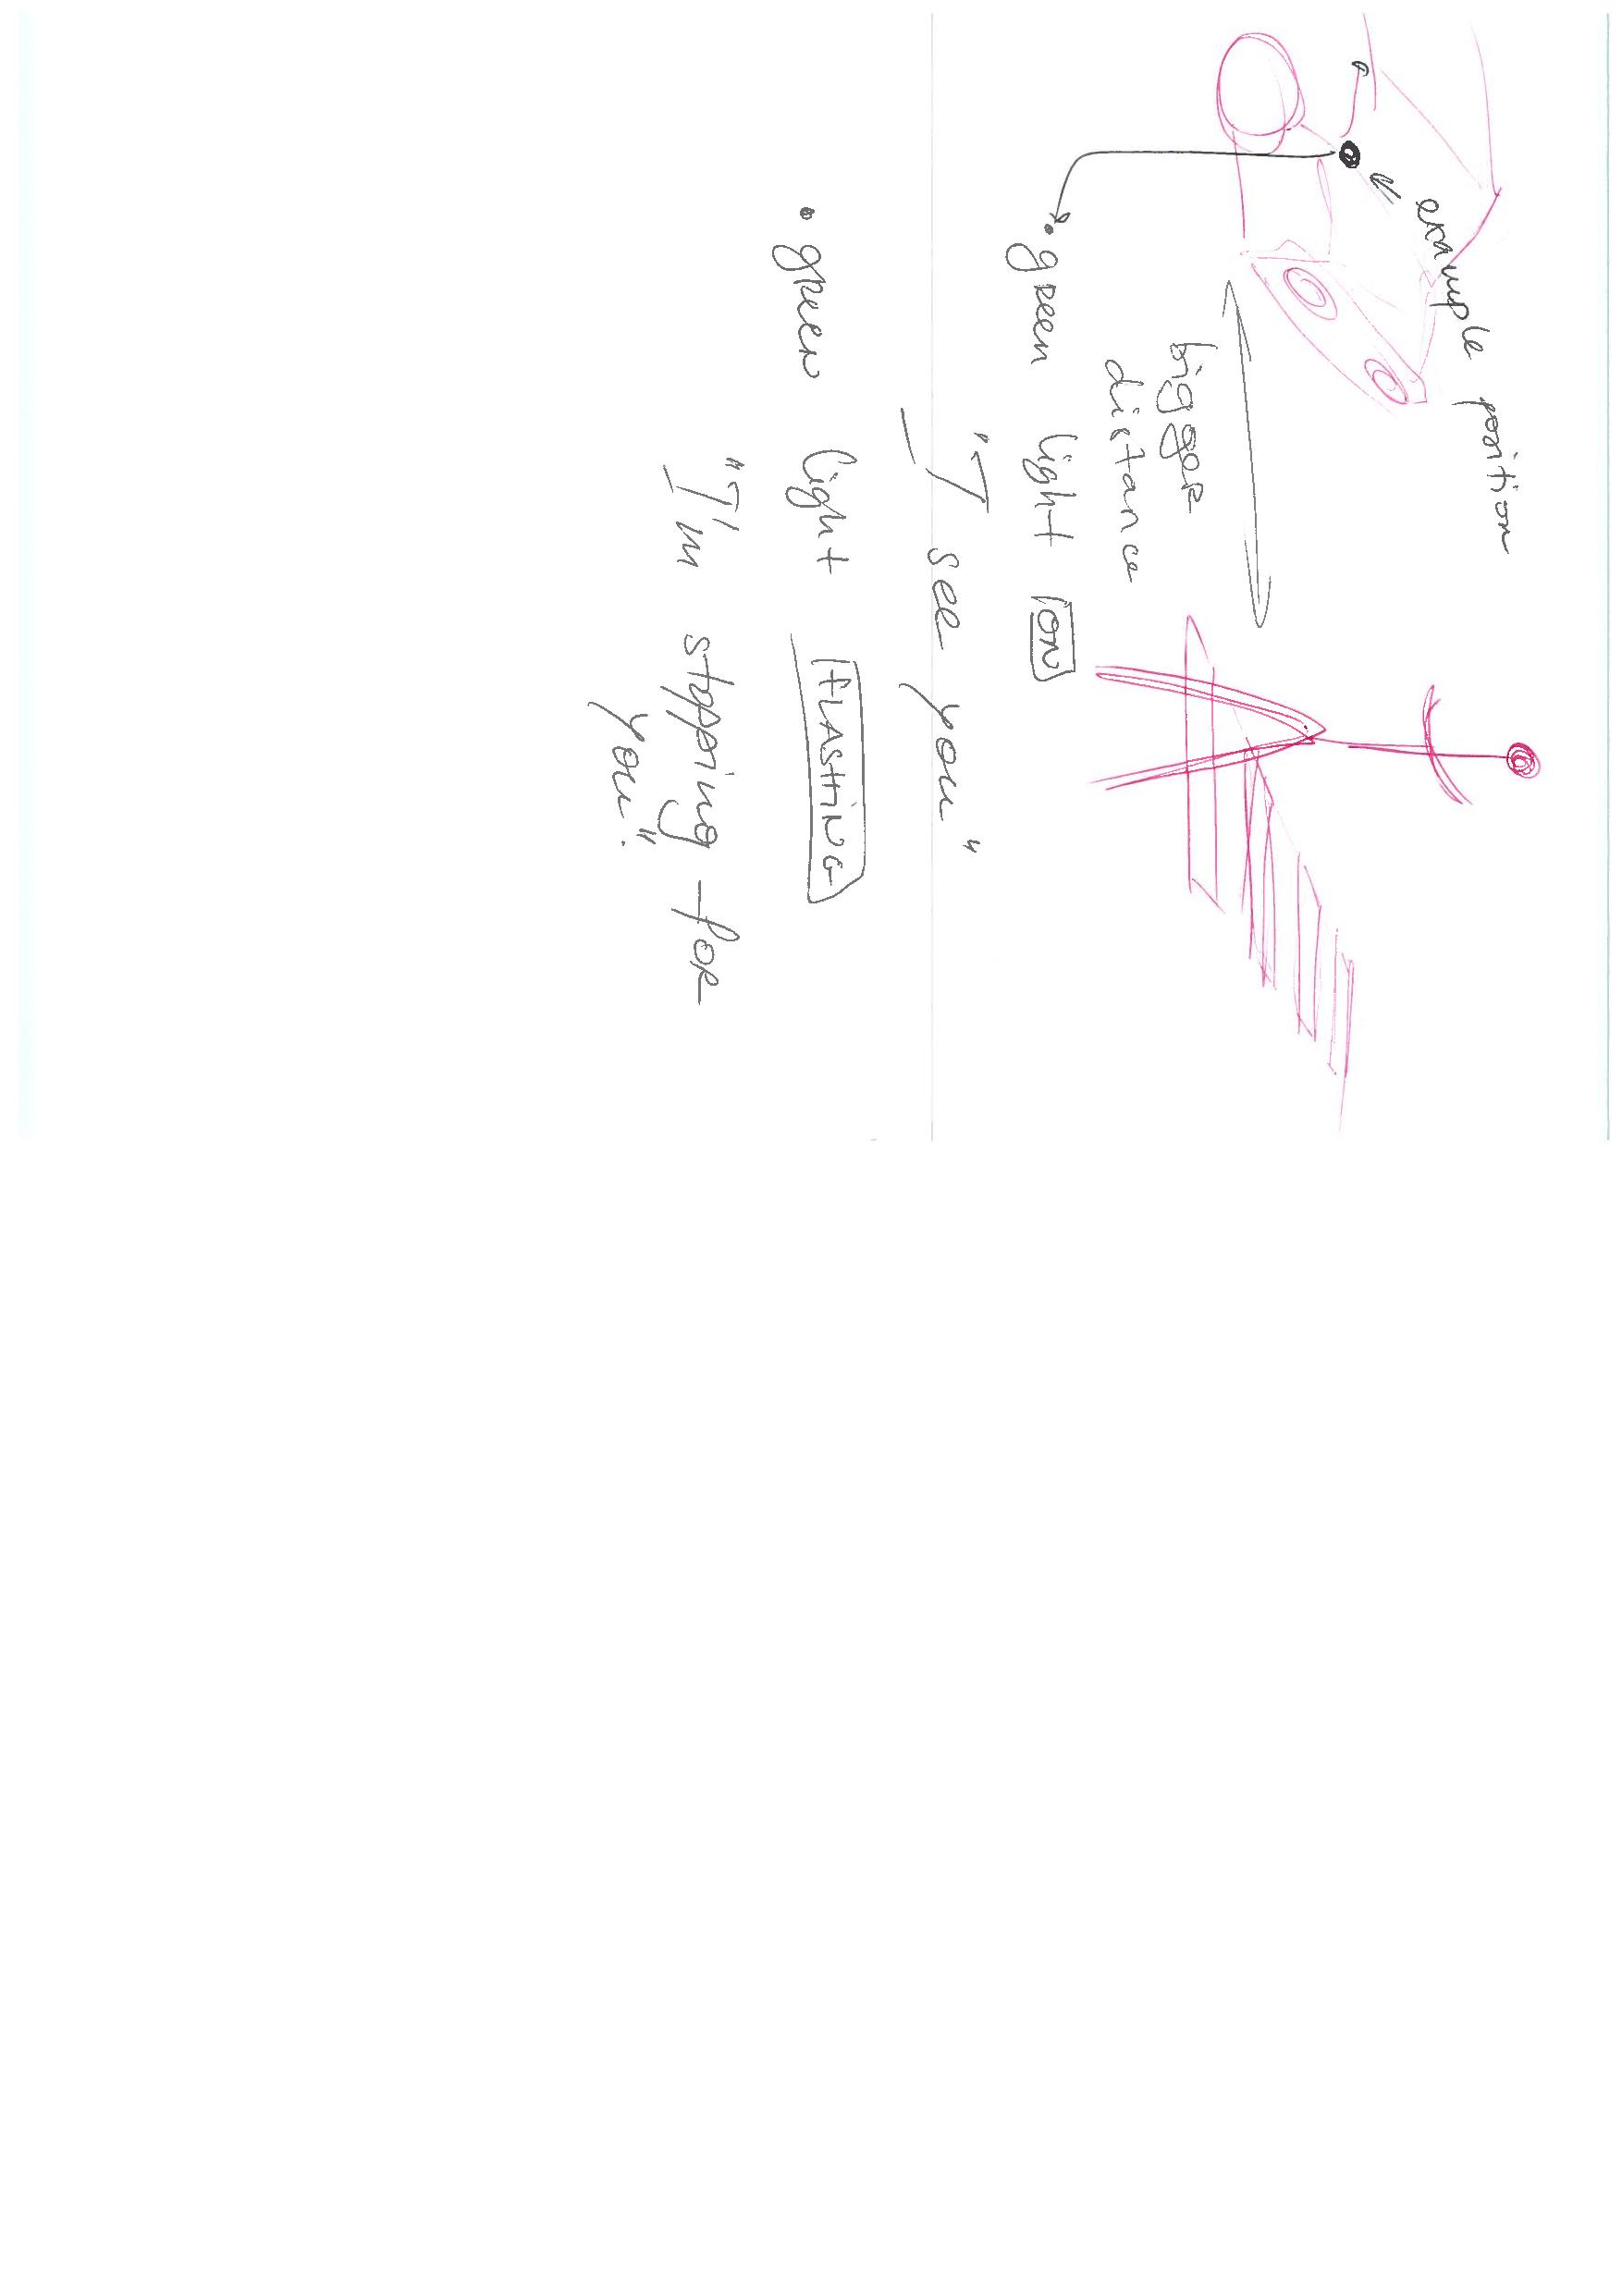 example position
bigger
distance
• green light ON
"I see you"
• green light FLASHING
"I'm stopping for
you".